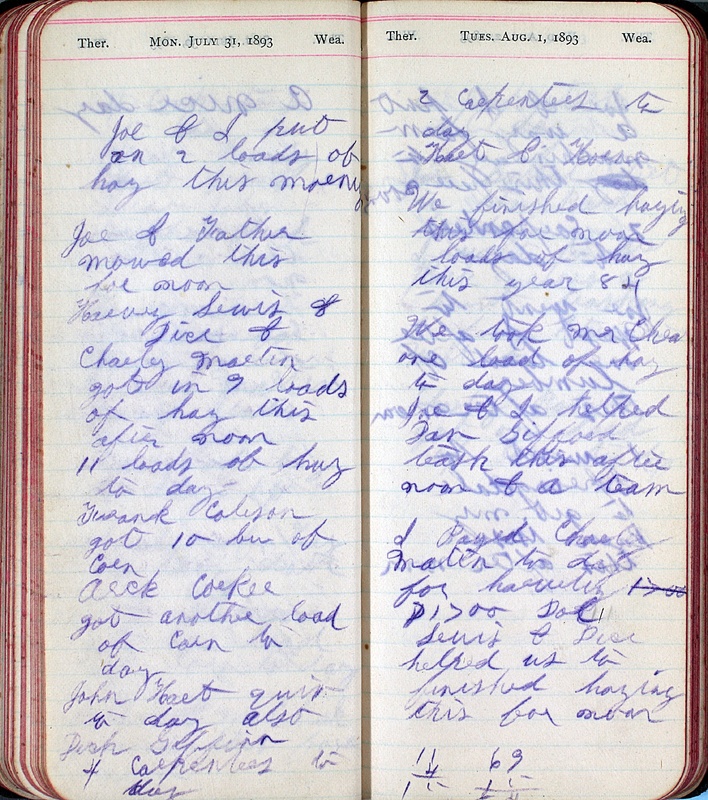 Ther. MON. JULY 31, 1893 Wea.
Joe & I put
on 2 loads of
hay this morning
Joe & Father
mowed this
fore noon
Harvey Lewis &
Dice &
Charly Martin
got in 9 loads
of hay this
after noon
11 loads of hay
to day
Frank
got 10 bu of
Corn
got another load
of Corn to
day
John Hart quit
to day also
4 Carpenters to
day
Ther. TUES. AUG. 1, 1893 Wea.
2 Carpenters to
day
Hart &
We finished haying
this fore noon
loads of hay
this year 84
We took Mr
one load of hay
to day
Joe & I helped
Dan Gifford
this after
noon & a team
I Payed Charly
Martin to day
for
Lewis & Dice
helped us to
finished haying
this for noon
14 69